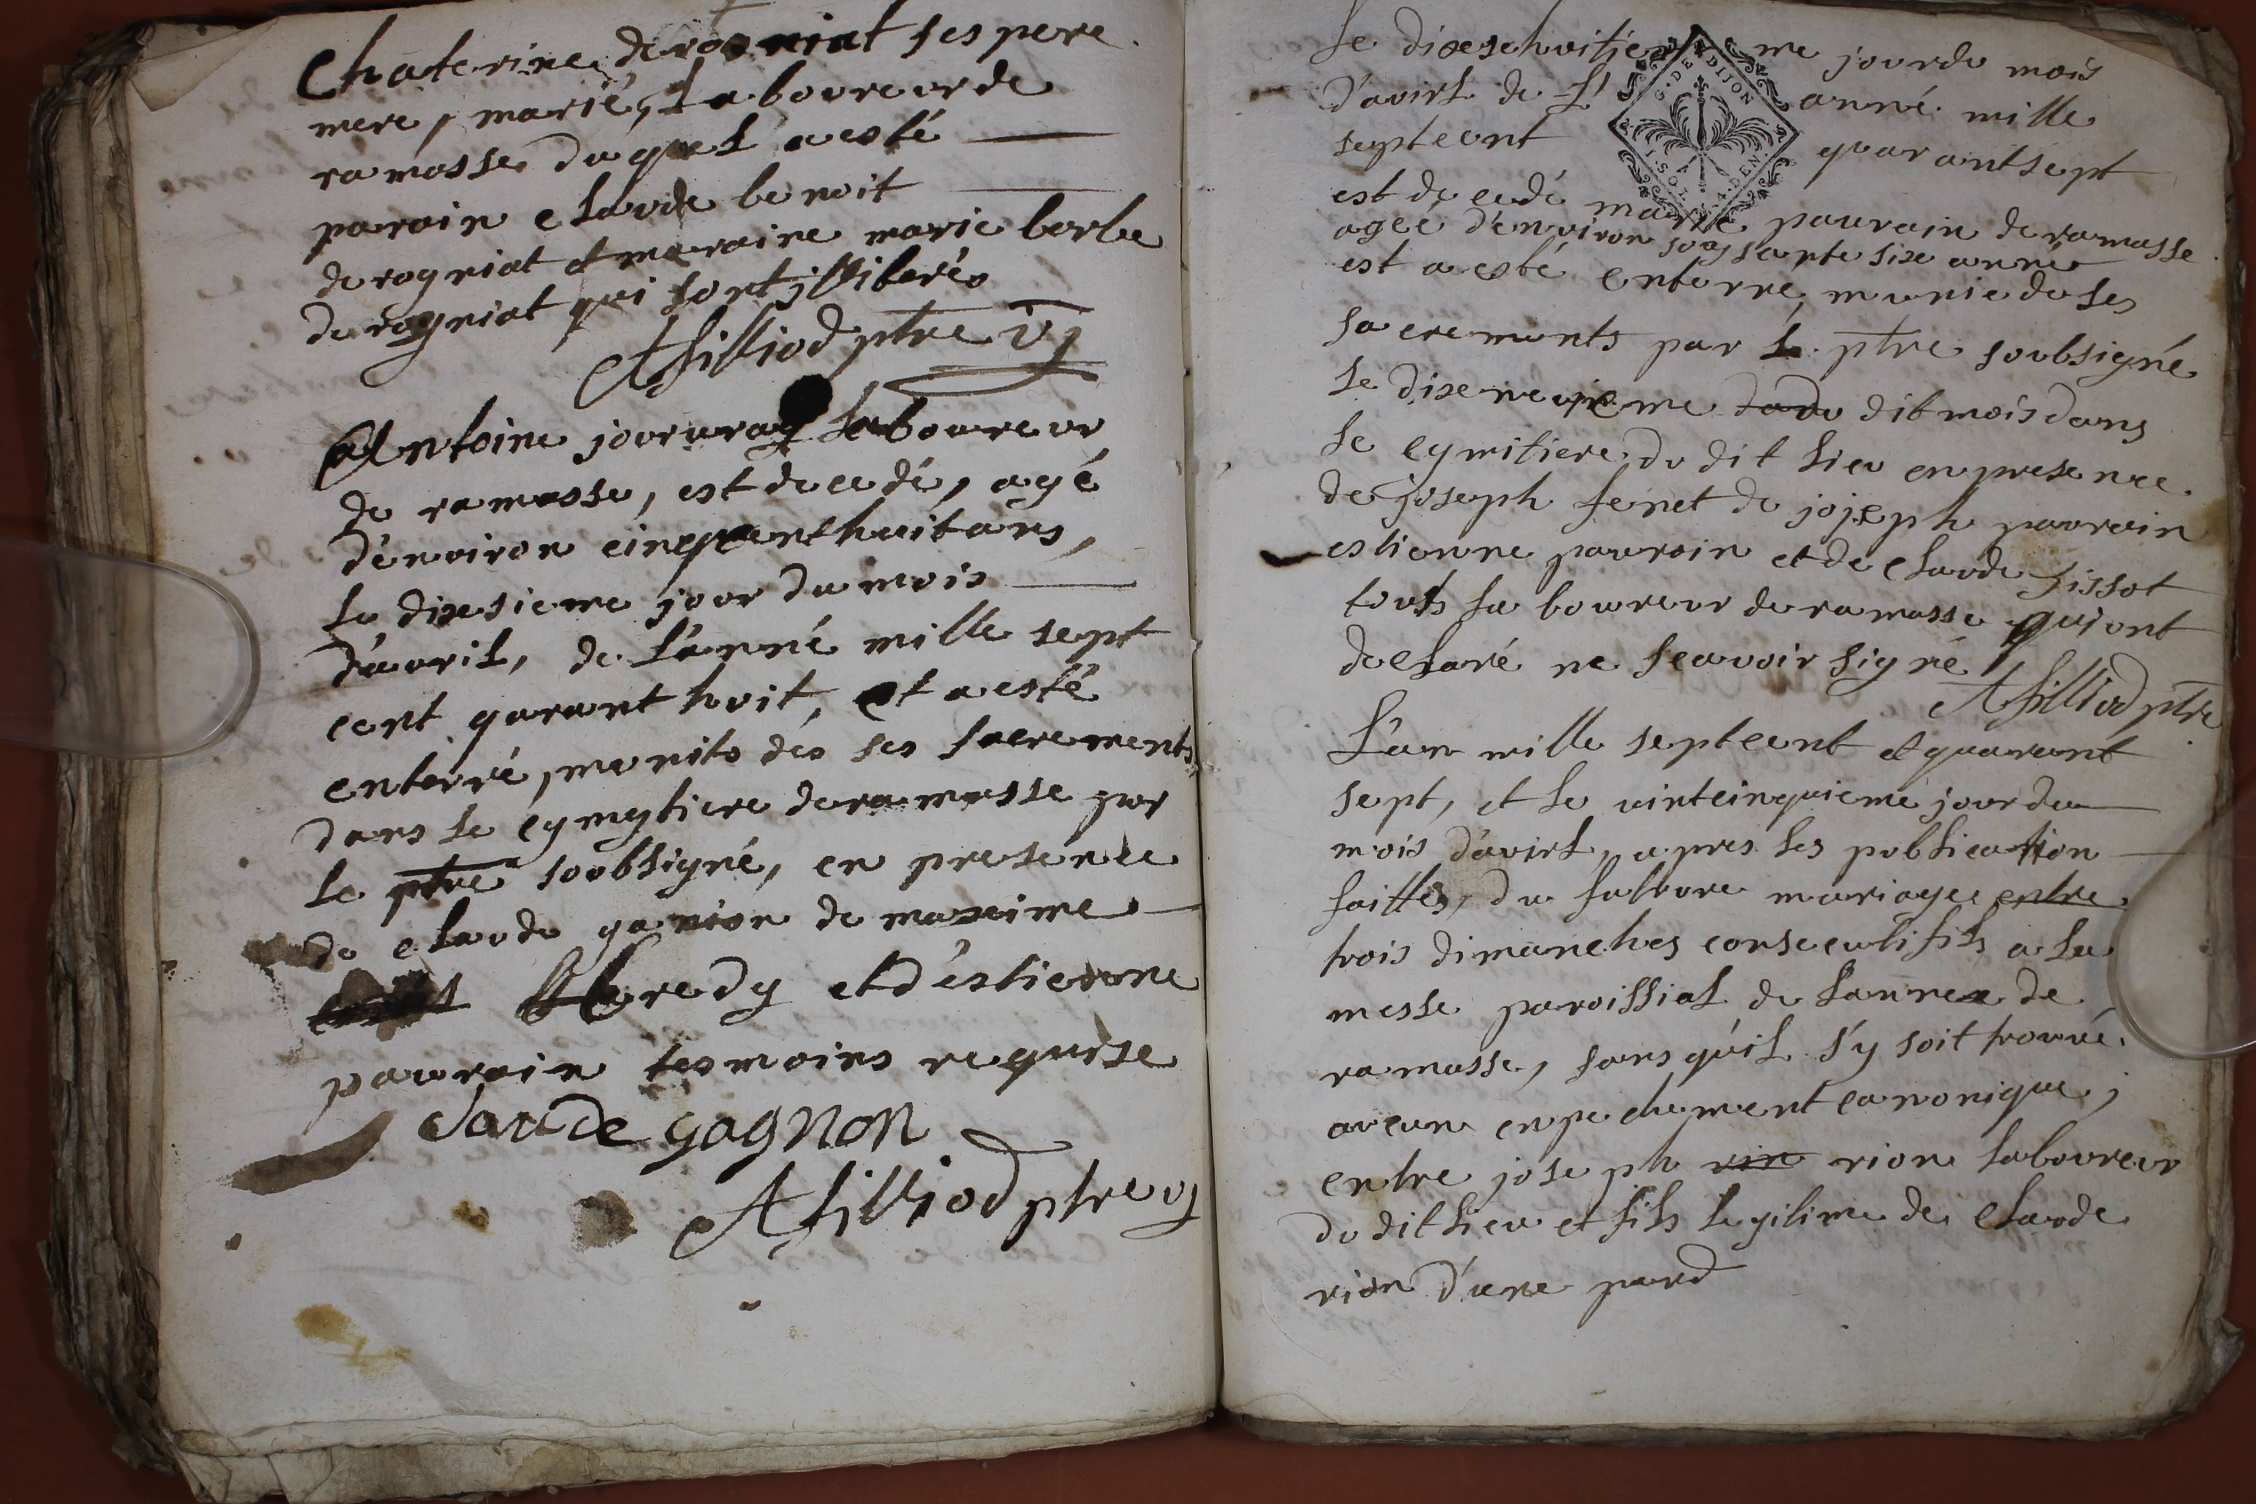 Chaterine derogniat ses pere
mere, marié, Laboureur de
ramasse duquel a esté
parain Claude benoit
derogniat et maraine marie berbe
derogniat qui sont illiterés
A filliod ptre vj
Antoine jourura laboureur
de ramasse, est decedé, agé
d'environ cinquanthuit ans,
le dixsieme jour du mois
d'avril, de l'anné mille sept
cent quarant huit, et a esté
enterré, munito des ses sacrements
dans le cymytiere de ramasse par
le ptre soobsigné, en presence
de Claude ganion de maxime
heredy et d'estienne
pauvrain tesmoins requise
Claude gagnon
A filliod ptre vj
Le dixsehuitie me jour du mois
d'avirl de L' anné mille
septcent quarantsept
est decedé marie pauvrain de ramasse
agée d'environ soissante six anne
est a esté enterré, munie de ses
sacrements par le ptre soubsigné
le dixeneuvieme du dit mois dans
le cymitiere du dit lieu en presence
de joseph fenet de jojeph pauvrain
estienne pauvrain et de Claude Tissot
touts laboureur de ramasse qui ont
declaré ne scavoir signé
A filliod ptre
L'an mille septcent et quarant
sept, et le vintcinquieme jour du
mois d'avirl, apres les publication
faittes, du future mariages entre
trois dimanches consecutifs a la
messe paroissial de l'annexe de
ramasse, sans qu'il s'y soit trouvé
aucun enpechement canonique,
entre joseph rin rion laboureur
du dit lieu et fils legitime de Claude
rion d'une pard
G. DE DIJON